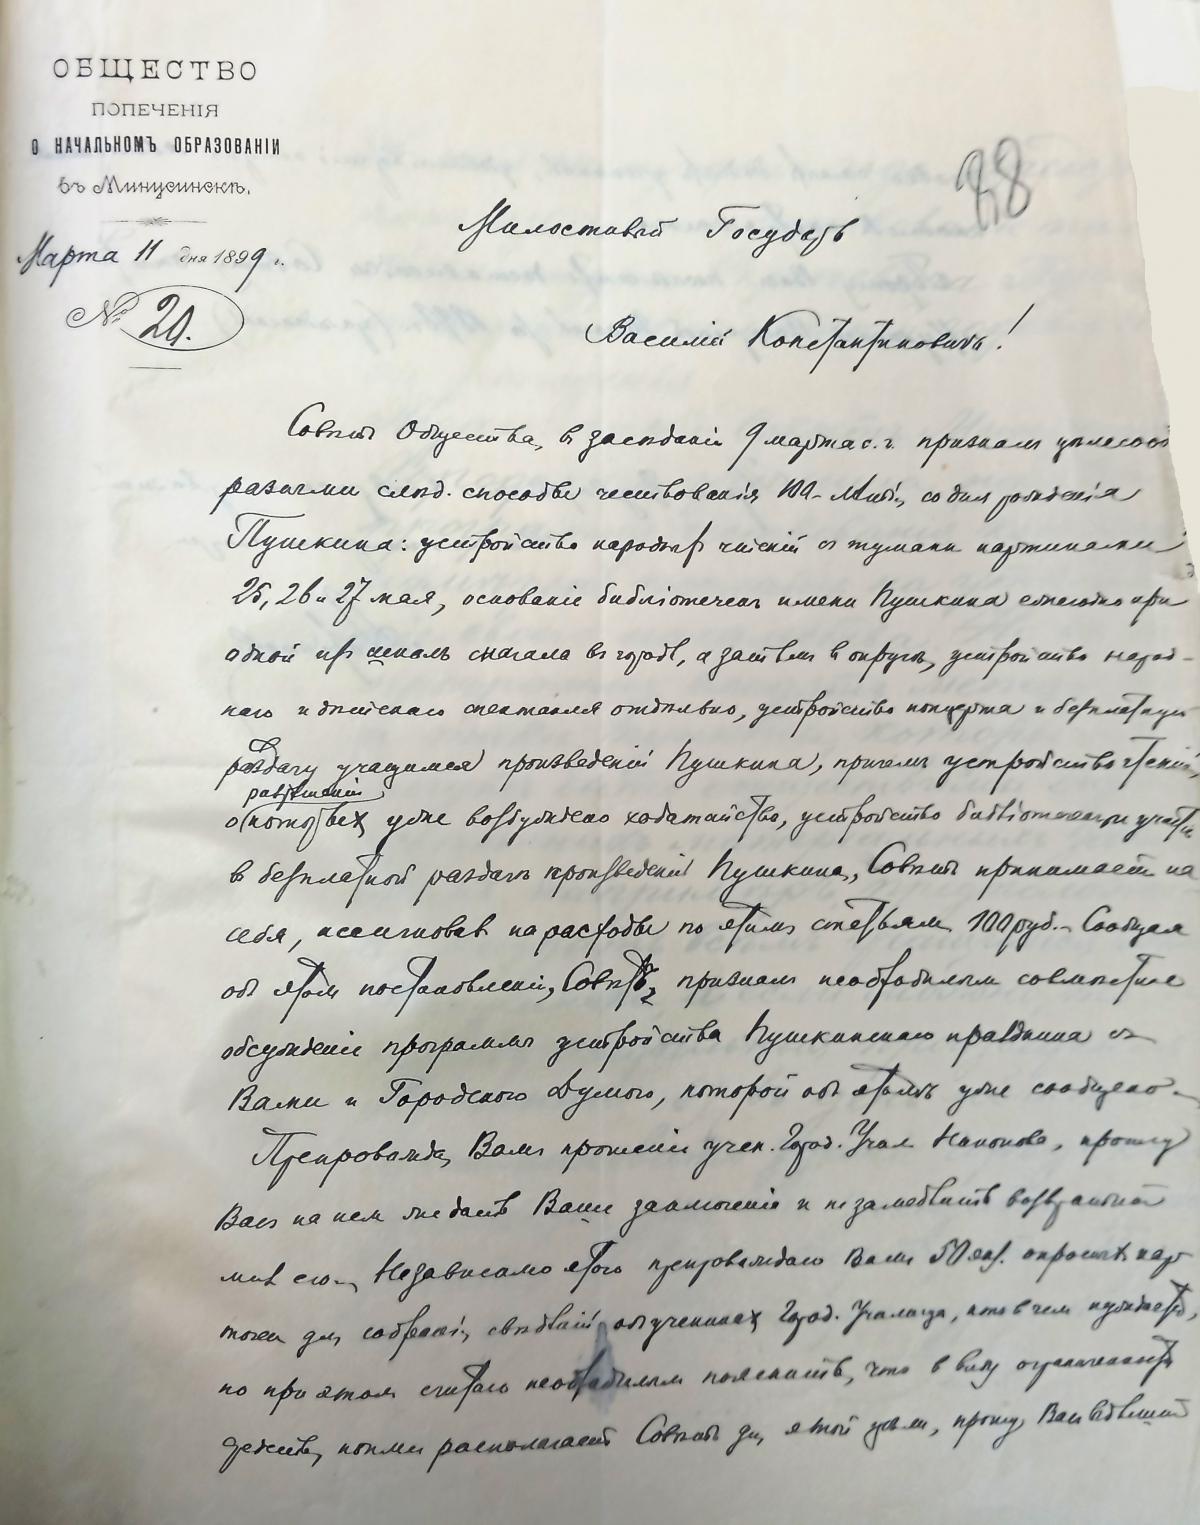 ОБЩЕСТВО
ПОПЕЧЕНІЯ
О НАЧАЛЬНОМЪ ОБРАЗОВАНІИ
въ Минусинскѣ.
Марта 11 дня 1899 г.
№ 20.
88
Милостивый Государь
Василій Константиновичъ!
Совѣтъ Общества, въ засѣданіи 9 марта с. г. призналъ цѣлесооб
разными слѣд. способы чествованія 100-лѣтія со дня рожденія
Пушкина: устройство народныхъ чтеній съ туман. картинами
25, 26 и 27 мая, основаніе библіотечекъ имени Пушкина ежегодно при
одной изъ школъ сначала въ городѣ, а затѣмъ въ округѣ, устройство народ-
наго и дѣтскаго спектакля отдѣльно, устройство концерта и безплатную
раздачу учащимся произведеній Пушкина, причемъ устройство чтеній,
разрѣшеніи
о которыхъ уже возбуждено ходатайство, устройство библіотечки и участіе
въ безплатной раздачѣ произведеній Пушкина, Совѣтъ принимаетъ на
себя, ассигновавъ на расходы по этимъ статьямъ 100 руб. Сообщая
объ этомъ постановленіи, Совѣтъ призналъ необходимымъ совмѣстное
обсужденіе программы устройства Пушкинскаго праздника съ
Вами и Городского Думою, которой объ этомъ уже сообщено.
Препровождая Вамъ прошеніе учен. Город. Учил. , прошу
Васъ на немъ же дать Ваше заключеніе и не замедлить возвратить
мнѣ его. Независимо этого препровождаю Вамъ 50 экз. опросныхъ кар
точекъ для собранія свѣдѣній объ ученикахъ Город. Училища, кто въ чемъ нуждается,
но при этомъ считаю необходимымъ пояснить, что въ виду ограниченности
средствъ, коими располагаетъ Совѣтъ для этой цѣли, прошу Васъ